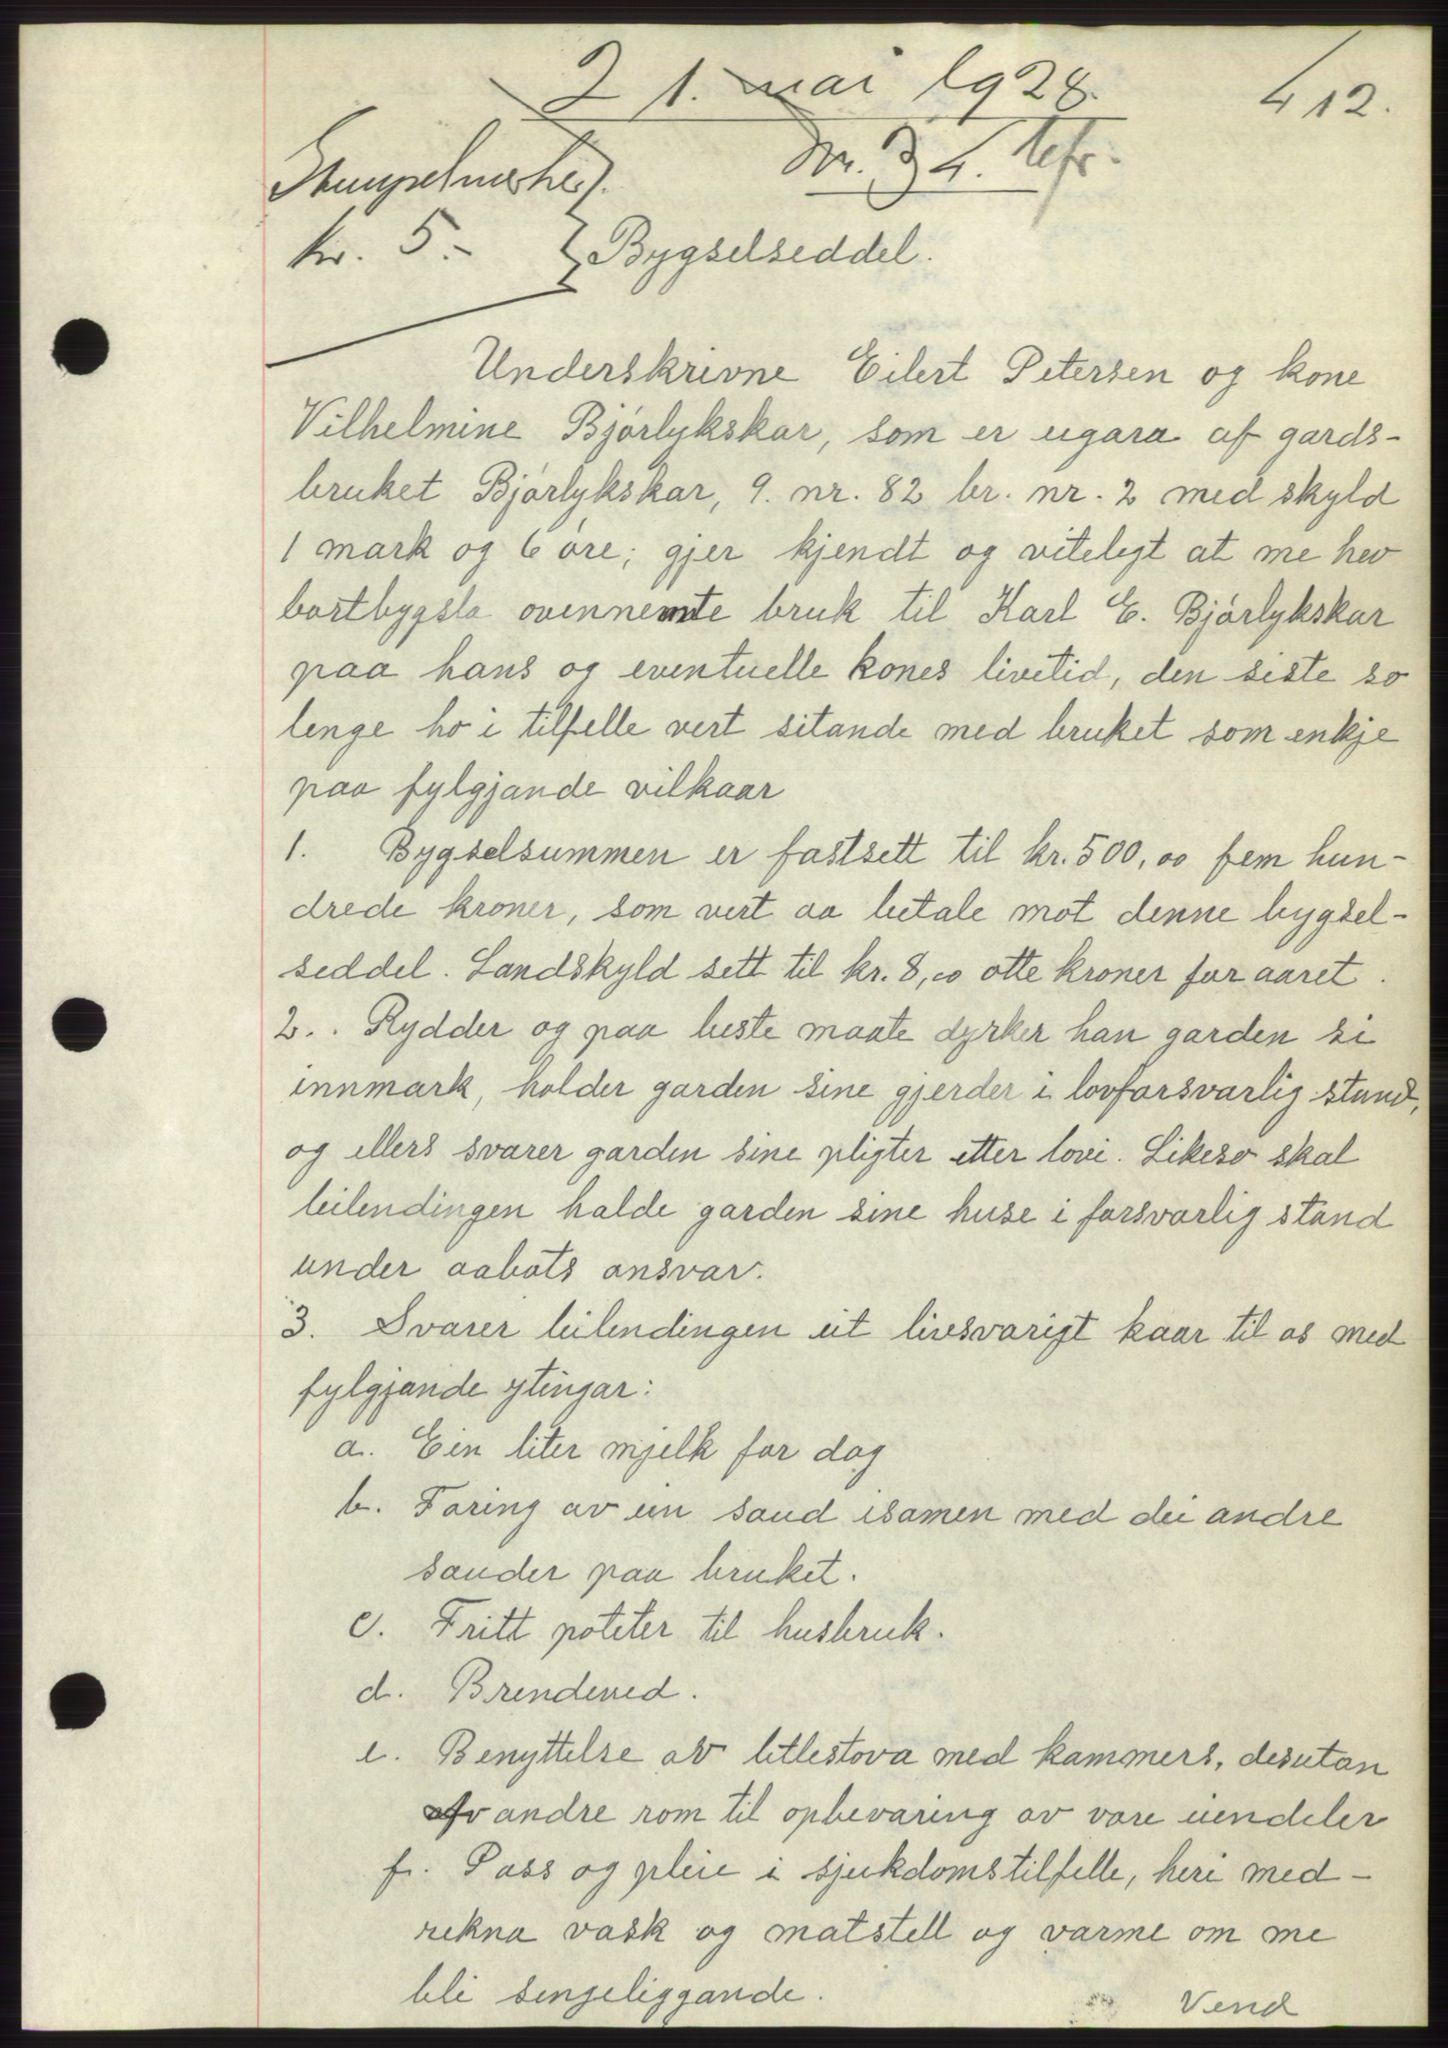 21. mai 1928.
412.
Nr. 34.
Stempelmerke
kr. 5.-
Bygselseddel.
Underskrivne Eilert Petersen og kone
Vilhelmine Bjørlykskar, som er eigara af gards-
bruket Bjørlykskar, g. nr. 82 br. nr. 2 med skyld
1 mark og 6 øre; gjer kjendt og vitelegt at me hev
bortbygsla ovennemte bruk til Karl E. Bjørlykskar
paa hans og eventuelle kones livetid, den siste so
lenge ho i tilfelle vert sitande med bruket som enkje
paa fylgjande vilkaar
1. Bygselsummen er fastsett til kr. 500,00 fem hun-
drede kroner, som vert aa betale mot denne bygsel-
seddel. Landskyld sett til kr. 8,00 otte kroner for aaret.
2. . Rydder og paa beste maate dyrker han garden si
innmark, holder garden sine gjerder i lovforsvarlig stand,
og ellers svarer garden sine pligter etter lovi. Likeso skal
leilendingen halde garden sine huse i forsvarlig stand
under aabots ansvar.
3. Svarer leilendingen eit livsvarigt kaar til os med
fylgjande ytingar:
a. Ein liter mjelk for dag
b. Foring av ein saud isamen med dei andre
sauder paa bruket.
c. Fritt poteter til husbruk.
d. Brendeved.
e. Benyttelse av litlestova med kammers, desutan
av andre rom til opbevaring av vore eiendeler
f. Pass og pleie i sjukdomstilfelle, heri med-
rekna vask og matstell og varme om me
bli sengeliggande.
Vend